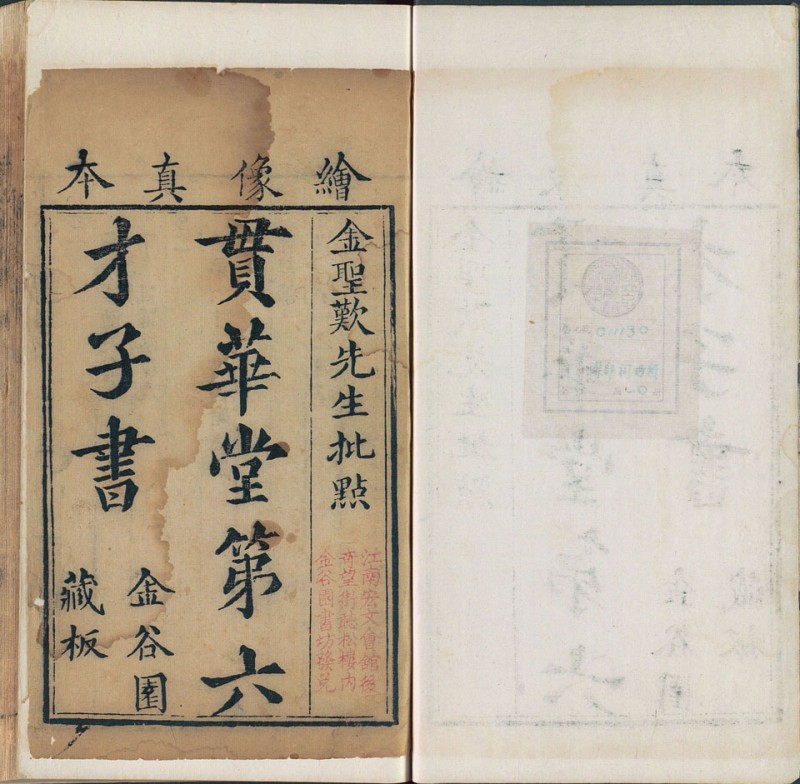 繪像真本
金聖歎先生批點
貫華堂第六
才子書
金谷園
藏板
江南宏文會館後
奇望街聽松樓內
金谷園書坊發兌